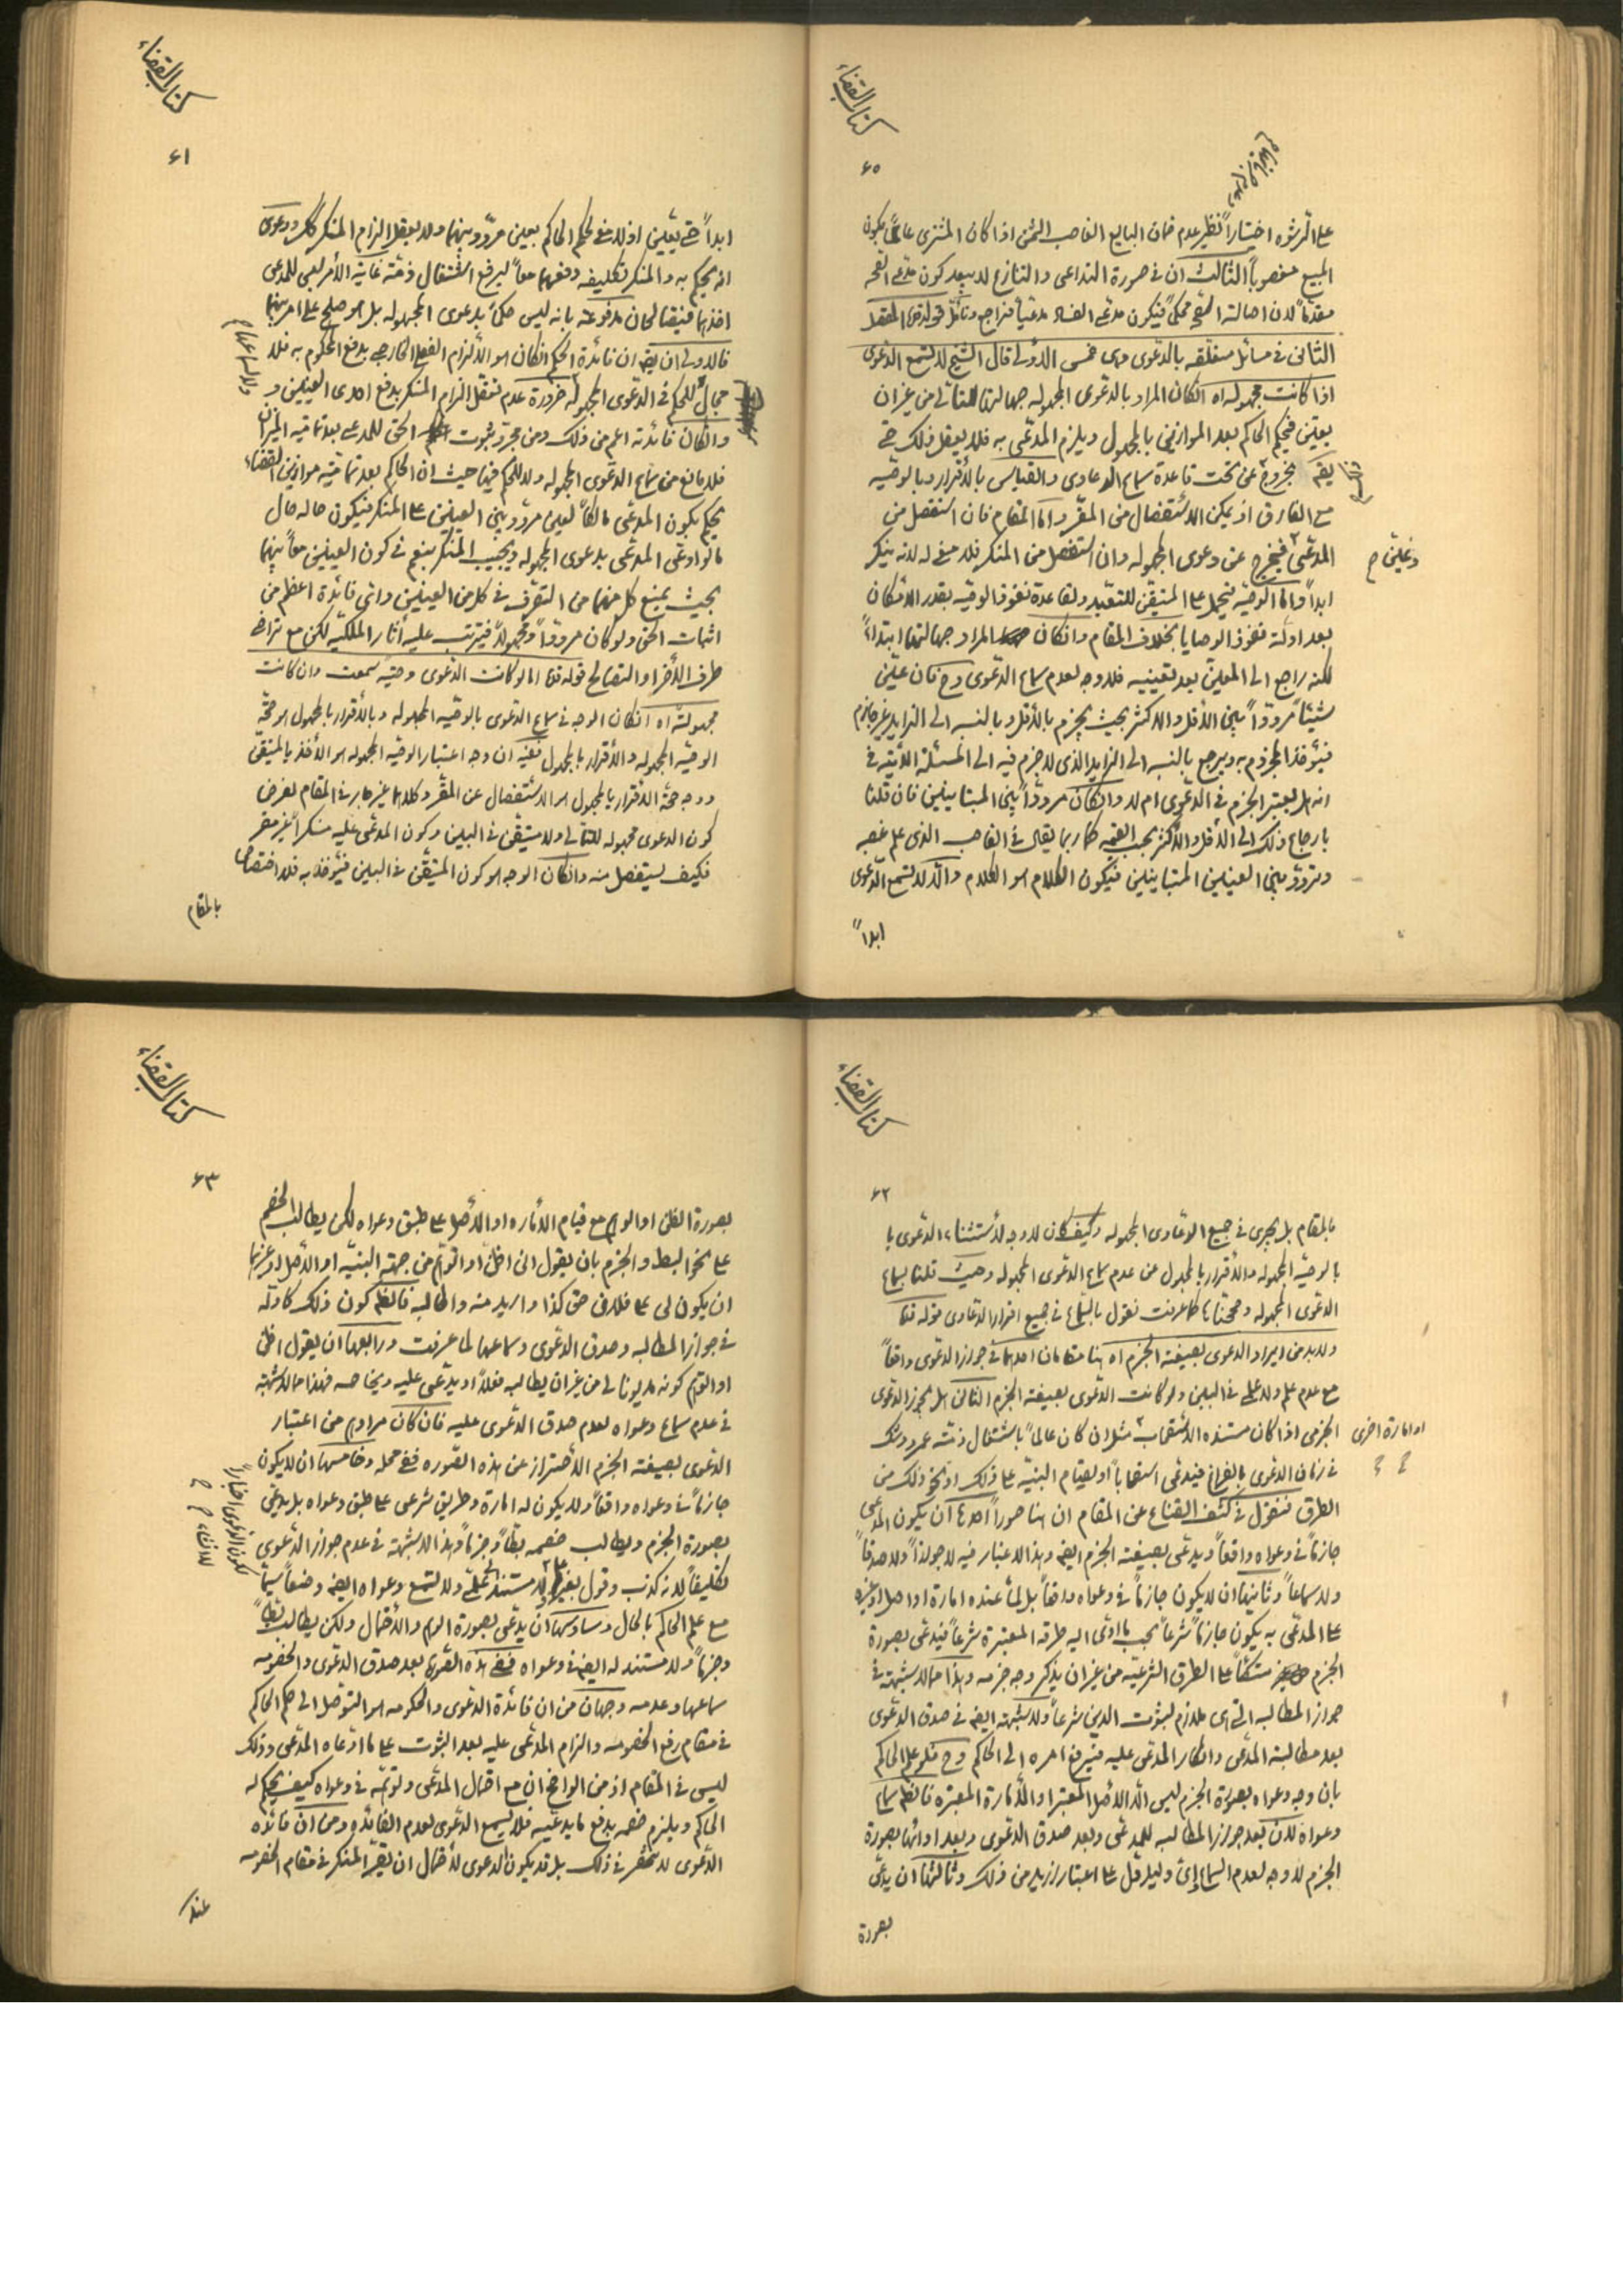 كتاب القضاء
۶۰
على الرشوه اختياراً نظير عدم ضمان البايع الغاصب الثمن اذا كان المشترى عالماً بكون
المبيع مغصوباً الثالث ان فى صورة التداعى والتنازع لا يبعد كون مدعى الصحة
مقدماً لان اصالة الصحة محكمة فيكون مدعى الفساد مدعياً فراجع وتأمل
الثانى فى مسائل متعلقه بالدعوى وهى خمس الاولى قال الشيخ لا تسمع الدعوى
اذا كانت مجهوله اه انكان المراد بالدعوى المجهوله جهالتها من غير ان
يعين فيحكم الحاكم بعد الموازين بالمجهول ويلزم المدعى به فلا يعقل ذلك حتى
يقال بخروج عن تحت قاعدة سماع الدعاوى والقياس بالأقرار وبالوصيه
مع الفارق اذ يمكن الاستفصال من المقر واما المقام فان استفصل من
المدعى فيخرج عن دعوى المجهوله وان استفصل من المنكر فلا معنى له لانه ينكر
وتعين م
ابداً واما الوصيه فيحمل على المتيقن للتعبد ولقاعدة نفوذ الوصيه بقدر الامكان
بعد ادلة نفوذ الوصايا بخلاف المقام وانكان المراد جهالتها ابتداءً
لكنه راجع الى المعلوم بعد تعيينه فلا وجه لعدم سماع الدعوى وح فان عين
شيئاً مردداً بين الأقل والاكثر بحيث يجزم بالأقل وبالنسبه الى الزايد غير جازم
فيؤخذ المجزوم به ويرجع بالنسبه الى الزايد الذى لا جزم فيه الى المسئلة الآتيه فى
انه هل يعتبر الجزم فى الدعوى ام لا وانكان مردداً بين المتباينين فان قلنا
بارجاع ذلك الى الأقل والأكثر بحسب القيمه كما ربما يقال فى الغاصب الذى علم غصبه
وتردد بين العينين المتباينين فيكون الكلام هو الكلام والا لا تسمع الدعوى
ابداً
كتاب القضاء
۶۱
ابداً حتى يتعين اذ لا معنى لحكم الحاكم بعين مردد بينهما ولا يعقل الزام المنكر ودعوى
انه يحكم به والمنكر تكليفه دفعهما معاً ليرفع اشتغال ذمته غاية الأمر ليس للمدعى
اخذهما مدفوعة بانه ليس حكماً بدعوى المجهوله بل هو صلح على امر بينهما
فالاولى ان يقال ان فائدة الحكم انكان هو الالزام الفعلى الخارجى بدفع المحكوم به فلا
مجال للحكم فى الدعوى المجهوله ضرورة عدم تعقل الزام المنكر بدفع احدى العينين و
وانكان فائدته اعم من ذلك ومن مجرد ثبوت الحق للمدعى بعد تمامية الميزان
فلا مانع من سماع الدعوى المجهوله ولا للحكم فيها حيث ان الحاكم بعد تمامية موازين القضاء
يحكم بكون المدعى مالكاً لعين مردد بين العينين على المنكر فيكون حاله حال
ما لو ادعى المدعى بدعوى المجهوله ويجيب المنكر بنعم فى كون العينين معاً بينهما
بحيث يمنع كل منهما من التصرف فى كل من العينين واى فائدة اعظم من
اثبات الحق ولو كان مردداً ومجهولاً فيترتب عليه آثار الملكيه لكن مع تراضى
طرف الآخر او التصالح قوله اما لو كانت الدعوى وصية سمعت وان كانت
مجهولة اه انكان الوجه فى سماع الدعوى بالوصيه المجهوله وبالأقرار بالمجهول هو صحة
الوصيه المجهوله والأقرار بالمجهول ففيه ان وجه اعتبار الوصيه المجهوله هو الأخذ بالمتيقن
ووجه صحة الاقرار بالمجهول هو الاستفصال عن المقر وكلاهما غير جار فى المقام لفرض
كون الدعوى مجهوله ولا متيقن فى البين وكون المدعى عليه منكراً غير مقر
فكيف يستفصل منه وانكان الوجه هو كون المتيقن فى البين فيؤخذ به فلا اختصاص
بالمقام
كتاب القضاء
۶۲
بالمقام بل يجرى فى جميع الدعاوى المجهوله وكيف كان لا وجه لأستثناء الدعوى با
بالوصيه المجهوله والأقرار بالمجهول من عدم سماع الدعوى المجهوله وحيث قلنا بسماع
الدعوى المجهوله وصحتها كما عرفت نقول بالسماع فى جميع افراد الدعاوى قوله
ولا بد من ايراد الدعوى بصيغة الجزم اه هنا مقامان احدهما فى جواز الدعوى واقعاً
مع عدم علم ولا علمى فى البين ولو كانت الدعوى بصيغة الجزم الثانى هل يجوز الدعوى
الجزمى اذا كان مستنده الاستصحاب مثل ان كان عالماً باشتغال ذمة عمرو وشك
او امارة اخرى
فى زمان الدعوى بالفراغ فيدعى استصحاباً او لقيام البنيه على ذلك او نحو ذلك من
الطرق فنقول فى كشف القناع عن المقام ان هنا صوراً احدها ان يكون المدعى
جازماً فى دعواه واقعاً ويدعى بصيغة الجزم ايضاً وهذا لا غبار فيه لا جوازاً ولا صدقاً
ولا سماعاً وثانيها ان لا يكون جازماً فى دعواه واقعاً بل لما عنده امارة او اصل او غيره
على المدعى به يكون جازماً شرعاً بحسب ما ادى اليه طرقه المعتبرة شرعاً فيدعى بصورة
الجزم متكئاً على الطرق الشرعيه من غير ان يذكر وجه جزمه وهذا مما لا شبهة فى
جواز المطالبه التى هى ملازم لثبوت الدين شرعاً ولا شبهة ايضاً فى صدق الدعوى
بعد مطالبة المدعى وانكار المدعى عليه فيرفع امره الى الحاكم وح فلو علم الحاكم
بان وجه دعواه بصورة الجزم ليس الا الأصل المعتبر او الأمارة المعتبره فالظاهر سماع
دعواه لان بعد جواز المطالبه للمدعى وبعد صدق الدعوى وبعد ادائها بصورة
الجزم لا وجه لعدم السماع اى دليل دل على اعتبار ازيد من ذلك وثالثها ان يدعى
بصورة
كتاب القضاء
۶۳
بصورة الظن او الوهم مع قيام الاماره او الأصل على طبق دعواه لكن يطالب الخصم
على نحو البت والجزم بان يقول انى اظن او اتوهم من جهة البنيه او الأصل او غيرها
ان يكون لى على فلان حق كذا واريد منه واطالبه فالظاهر كون ذلك كاوله
فى جواز المطالبه وصدق الدعوى وسماعها لما عرفت ورابعها ان يقول اظن
او اتوهم كونه مديونا لى من غير ان يطالب فعلاً او يدعى عليه ويخاصمه فهذا مما لا شبهة
فى عدم سماع دعواه لعدم صدق الدعوى عليه فان كان مرادهم من اعتبار
الدعوى بصيغة الجزم الاحتراز عن هذه الصوره ففى محله وخامسها ان لا يكون
جازماً فى دعواه واقعاً ولا يكون له امارة وطريق شرعى على طبق دعواه بل يدعى
بصورة الجزم ويطالب خصمه بتاً وجزماً وهذا لا شبهة فى عدم جواز الدعوى
تكليفاً لانه كذب وقول بغير علم ولا مستند علمى ولا تسمع دعواه ايضاً وضعاً سيما
مع علم الحاكم بالحال وسادسها ان يدعى بصورة الوهم والأحتمال ولكن يطالب بتاً
وجزماً ولا مستند له ايضاً فى دعواه ففى هذه الصورة بعد صدق الدعوى والخصومه
سماعها وعدمه وجهان من ان فائدة الدعوى والحكومه هو التوصل الى حكم الحاكم
فى مقام رفع الخصومه والزام المدعى عليه بعد الثبوت على ما ادعاه المدعى وذلك
ليس فى المقام اذ من الواضح ان مع احتمال المدعى وتوهمه فى دعواه كيف يحكم له
الحاكم ويلزم خصمه بدفع ما يدعيه فلا يسمع الدعوى لعدم الفائده ومن ان فائده
الدعوى لا تنحصر فى ذلك بل قد يكون الدعوى لأحتمال ان يقر المنكر فى مقام الخصومه
عند